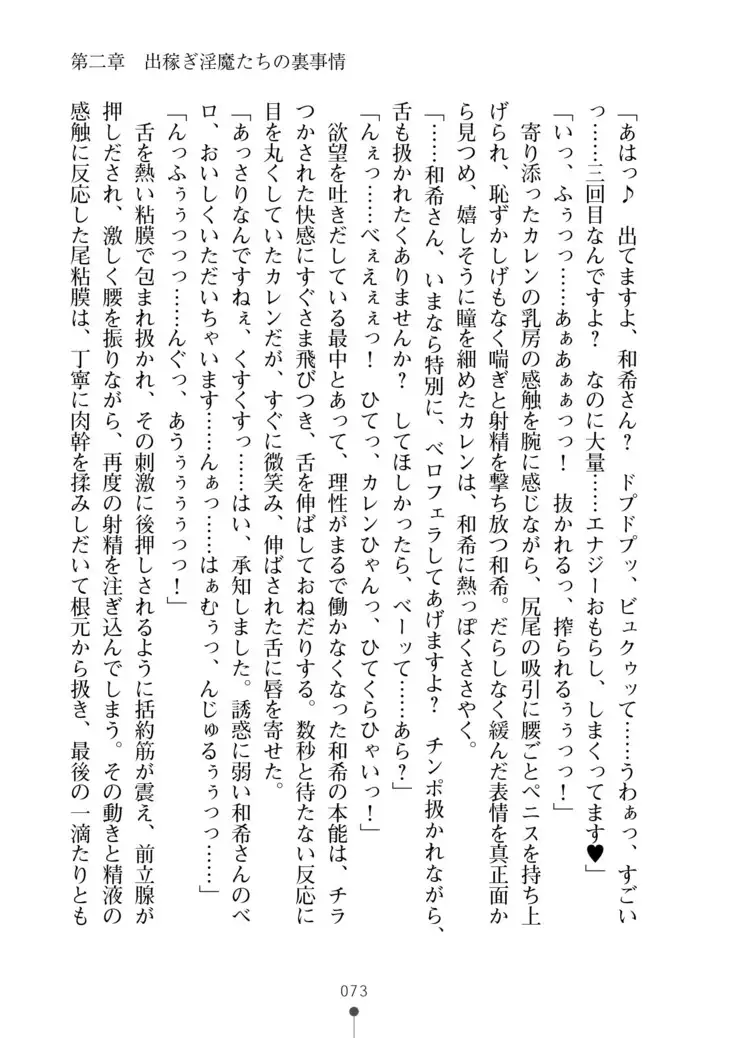 第二章　出稼ぎ淫魔たちの裏事情
「あはっ♪　出てますよ、和希さん？　ドプドプッ、ビュクゥッて……うわぁっ、すごい
っ……三回目なんですよ？　なのに大量……エナジーおもらし、しまくってます♥」
「いっ、ふぅっっ……あぁあぁぁっっ！　抜かれるっ、搾られるぅぅっっ！」
　寄り添ったカレンの乳房の感触を腕に感じながら、尻尾の吸引に腰ごとペニスを持ち上
げられ、恥ずかしげもなく喘ぎと射精を撃ち放つ和希。だらしなく緩んだ表情を真正面か
ら見つめ、嬉しそうに瞳を細めたカレンは、和希に熱っぽくささやく。
「……和希さん、いまなら特別に、ベロフェラしてあげますよ？　チンポ扱かれながら、
舌も扱かれたくありませんか？　してほしかったら、べーッて……あら？」
「んぇっ……べぇえぇぇっ！　ひてっ、カレンひゃんっ、ひてくらひゃいっ！」
　欲望を吐きだしている最中とあって、理性がまるで働かなくなった和希の本能は、チラ
つかされた快感にすぐさま飛びつき、舌を伸ばしておねだりする。数秒と待たない反応に
目を丸くしていたカレンだが、すぐに微笑み、伸ばされた舌に唇を寄せた。
「あっさりなんですねぇ、くすくすっ……はい、承知しました。誘惑に弱い和希さんのベ
ロ、おいしくいただいちゃいます……んぁっ……はぁむぅっ、んじゅるぅぅっっ……」
「んっふぅぅっっっ……んぐっ、あうぅぅぅぅっっ！」
　舌を熱い粘膜で包まれ扱かれ、その刺激に後押しされるように括約筋が震え、前立腺が
押しだされ、激しく腰を振りながら、再度の射精を注ぎ込んでしまう。その動きと精液の
感触に反応した尾粘膜は、丁寧に肉幹を揉みしだいて根元から扱き、最後の一滴たりとも
073